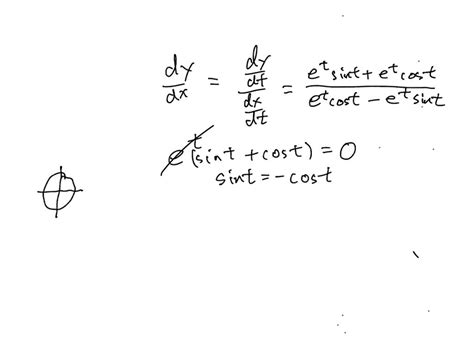 dy/dx = (dy/dt)/(dx/dt) = (e^t sint + e^t cost)/(e^t cost - e^t sint)
e^t(sint + cost) = 0
sint = -cost